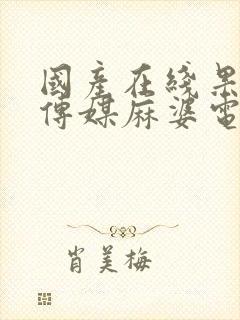 國產在綫果
傳媒麻婆電
肖美梅